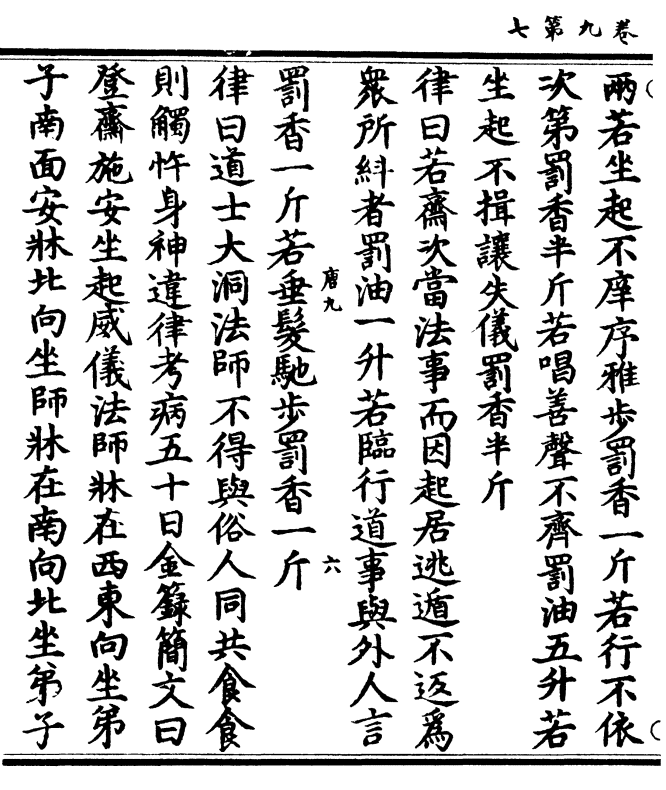 卷九第七
兩若坐起不庠序雅步罰香一斤若行不依
次第罰香半斤若唱善聲不齊罰油五升若
坐起不揖讓失儀罰香半斤
律曰若齋次當法事而因起居逃遁不返爲
衆所糾者罰油一升若臨行道事與外人言
唐九
六
罰香一斤若垂髮馳步罰香一斤
律曰道士大洞法師不得與俗人同共食食
則觸忤身神違律考病五十日金籙簡文曰
登齋施安坐起威儀法師牀在西東向坐弟
子南面安牀北向坐師牀在南向北坐弟子